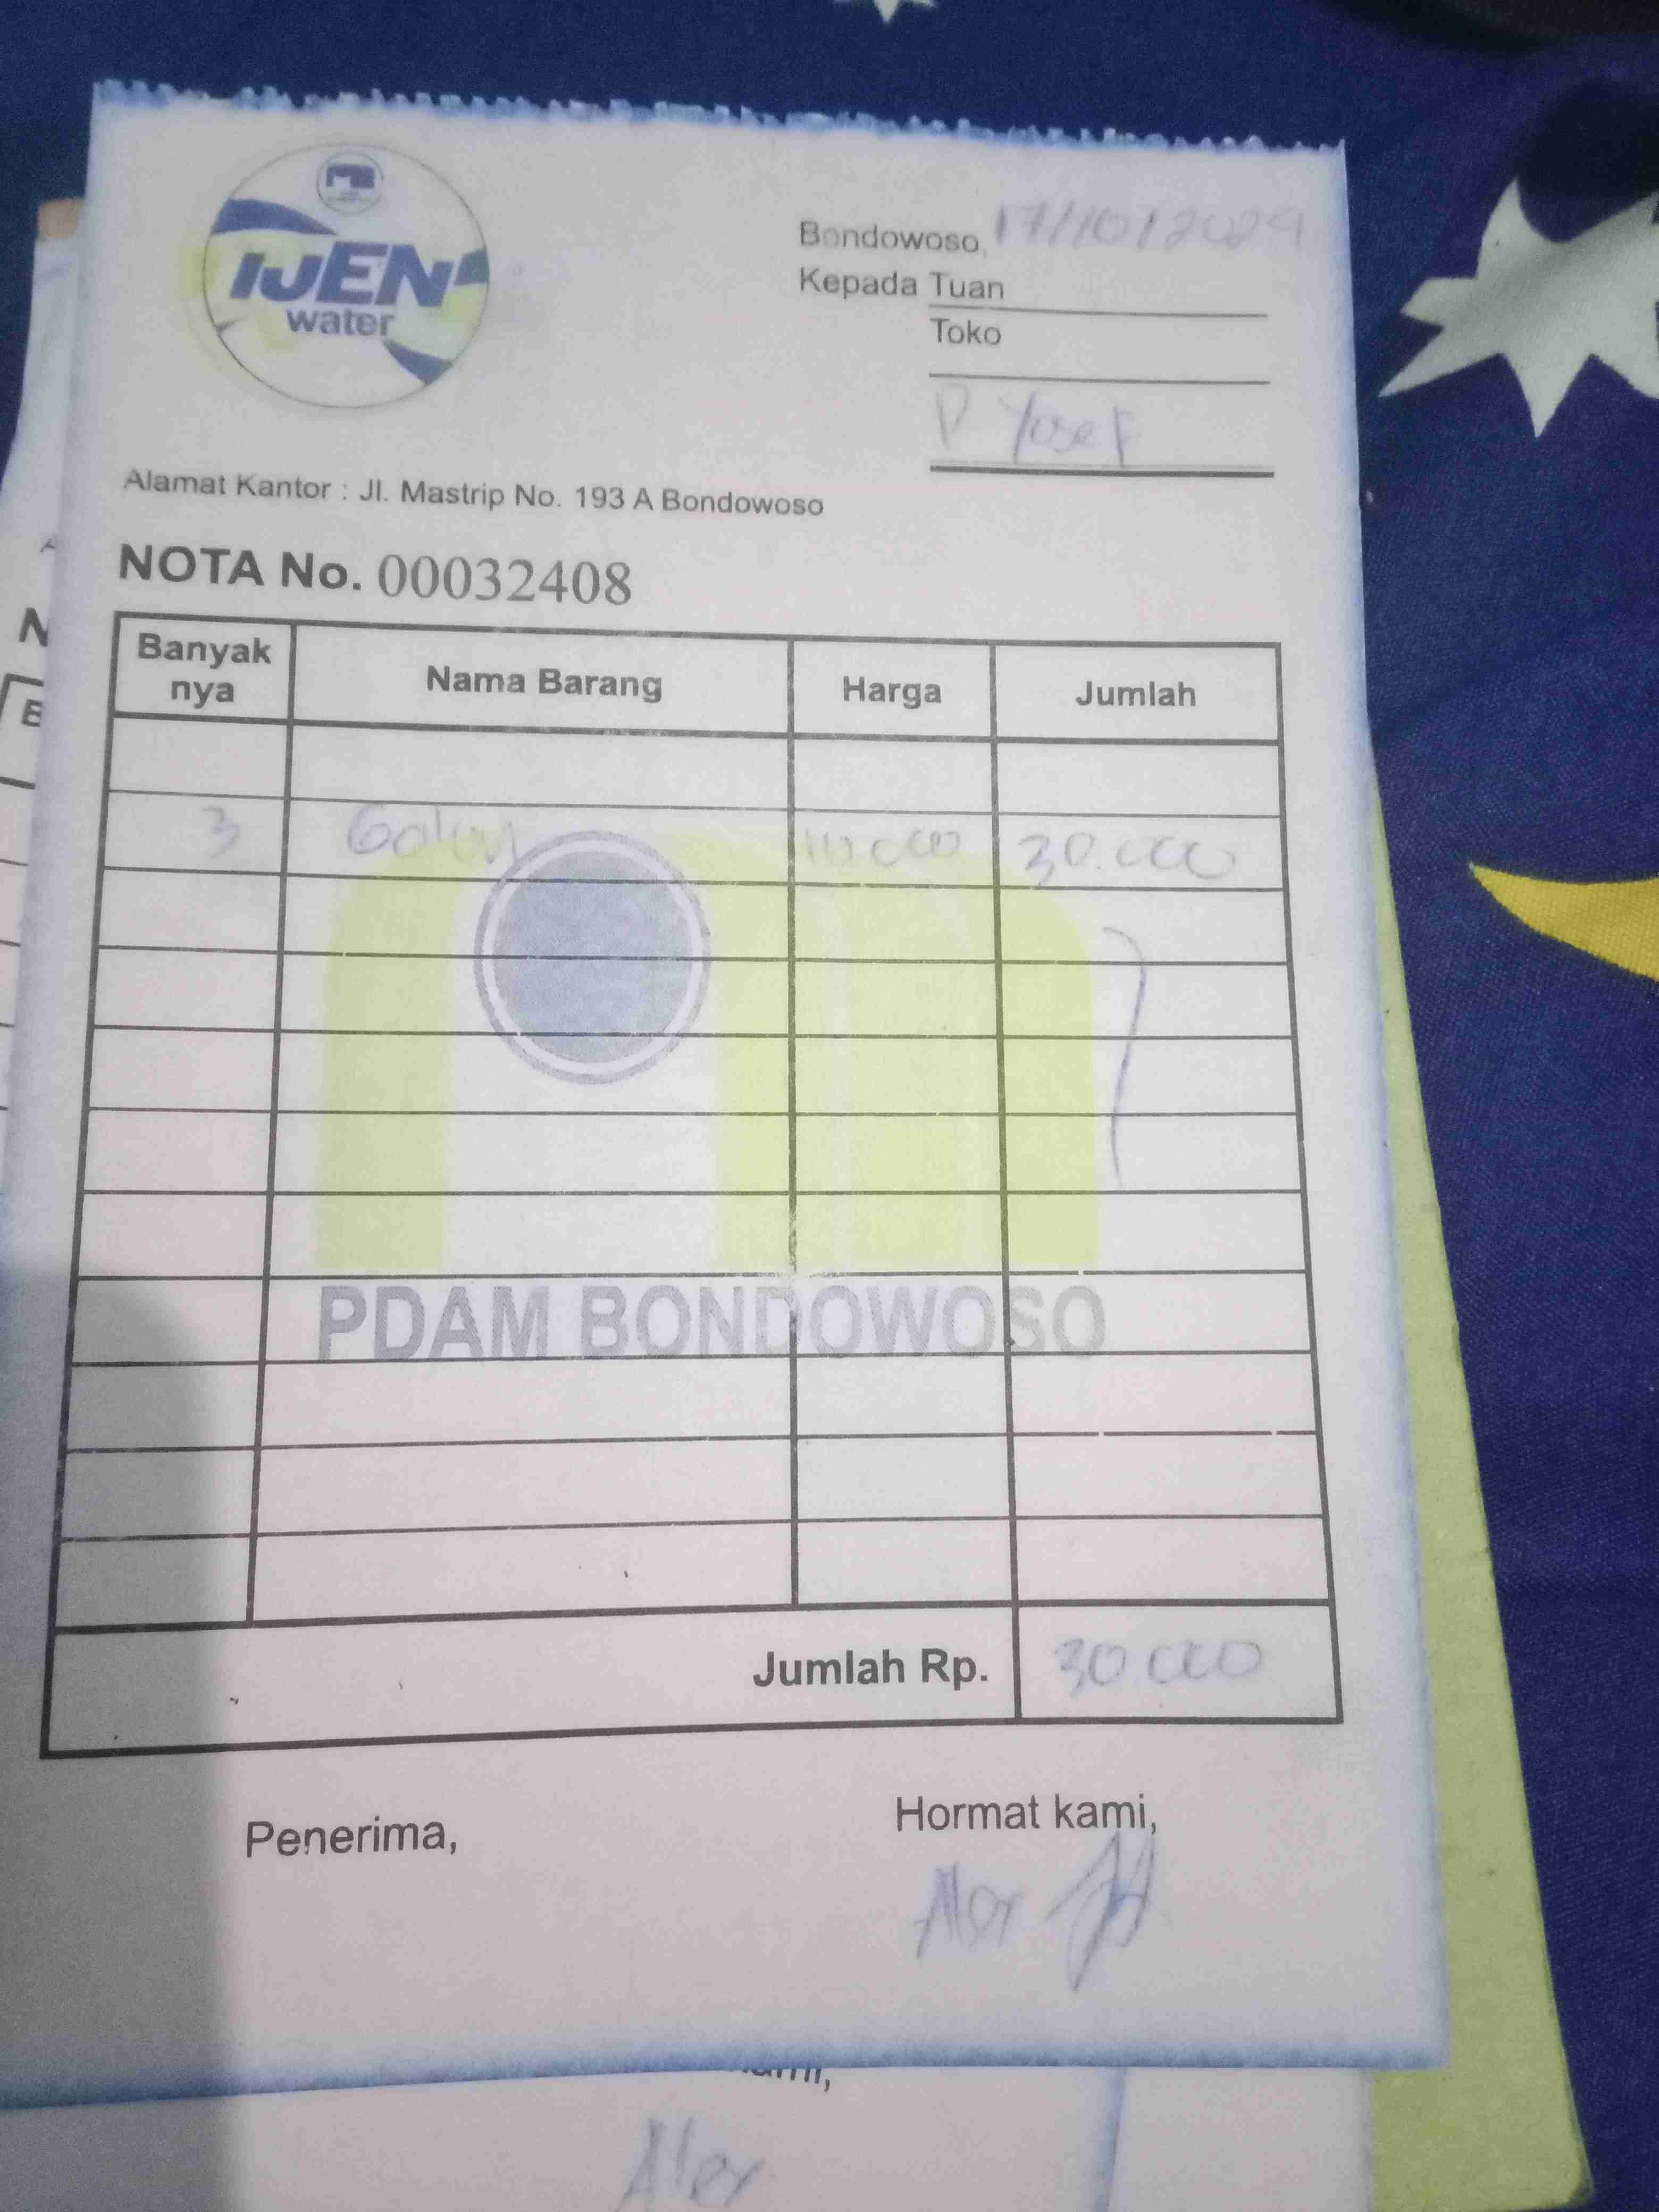 IJEN
water
Bondowoso, 17/10/2024
Kepada Tuan
Toko
P Yosef
Alamat Kantor : Jl. Mastrip No. 193 A Bondowoso
NOTA No. 00032408
Banyak nya Nama Barang Harga Jumlah
3 Galon 10.000 30.000
PDAM BONDOWOSO
Jumlah Rp. 30.000
Penerima, Hormat kami,
Alex
Alex